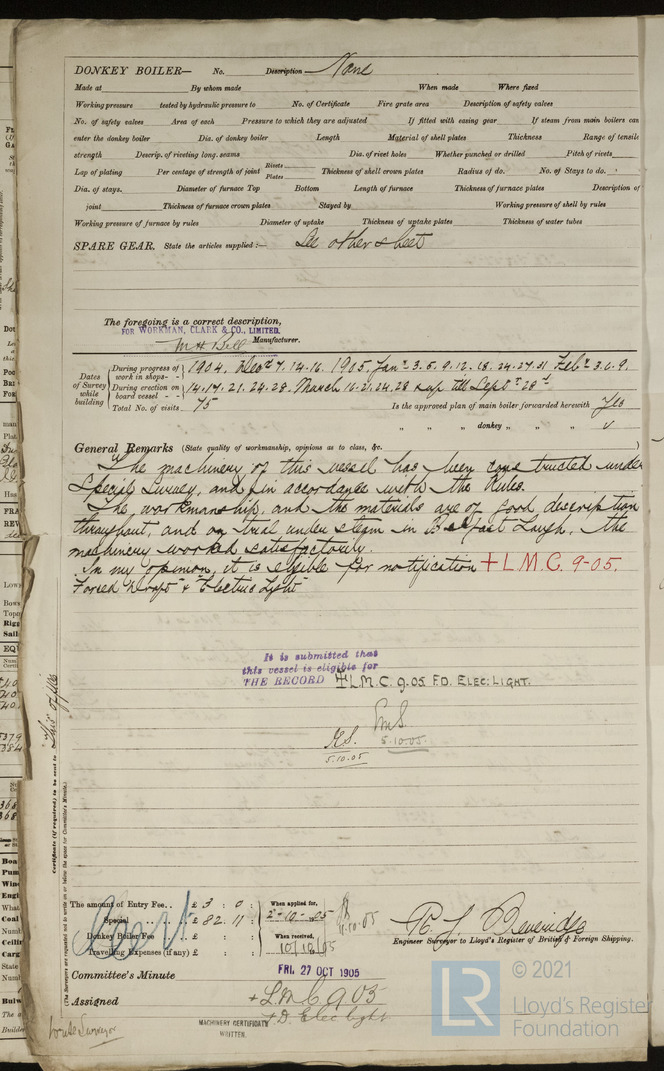 DONKEY BOILER— No. Description None
Made at By whom made When made Where fixed
Working pressure tested by hydraulic pressure to No. of Certificate Fire grate area Description of safety valves
No. of safety valves Area of each Pressure to which they are adjusted If fitted with easing gear If steam from main boilers can
enter the donkey boiler Dia. of donkey boiler Length Material of shell plates Thickness Range of tensile
strength Descrip. of riveting long. seams Dia. of rivet holes Whether punched or drilled Pitch of rivets
Lap of plating Per centage of strength of joint Rivets Plates Thickness of shell crown plates Radius of do. No. of Stays to do.
Dia. of stays. Diameter of furnace Top Bottom Length of furnace Thickness of furnace plates Description of
joint Thickness of furnace crown plates Stayed by Working pressure of shell by rules
Working pressure of furnace by rules Diameter of uptake Thickness of uptake plates Thickness of water tubes
SPARE GEAR. State the articles supplied :— See other sheet
The foregoing is a correct description,
FOR WORKMAN, CLARK & CO., LIMITED,
Manufacturer.
Dates of Survey while building
During progress of work in shops - - 1904. Decr 7. 14. 16. 1905. Janr 3. 5. 9. 12. 18. 24. 27. 31 Febr 3. 6. 9.
During erection on board vessel - - 14. 17. 21. 24. 28. March 16. 21. 24. 28 & up till Septr 28th
Total No. of visits 75 Is the approved plan of main boiler forwarded herewith Yes
" " donkey " " "
General Remarks (State quality of workmanship, opinions as to class, &c.
The machinery of this vessel has been constructed under
Special Survey, and in accordance with the Rules.
The workmanship, and the materials are of good description
throughout, and on trial under steam in Belfast Lough, the
machinery worked satisfactorily.
In my opinion, it is eligible for notification + L.M.C. 9-05.
Forced Draft & "Electric Light"
It is submitted that
this vessel is eligible for
THE RECORD + L.M.C. 9.05 F.D. ELEC: LIGHT.
5.10.05
5.10.05
Certificate (if required) to be sent to This office
(The Surveyors are requested not to write on or below the space for Committee's Minute.)
The amount of Entry Fee .. £ 3 : 0 : When applied for,
Special .. .. £ 82 : 11 : 2-10-05
Donkey Boiler Fee .. £ : : When received,
Travelling Expenses (if any) £ : : 10/10/05
Engineer Surveyor to Lloyd's Register of British & Foreign Shipping.
Committee's Minute FRI. 27 OCT 1905
Assigned + L.M.C. 9.05
F.D. Elec light
MACHINERY CERTIFICATE
WRITTEN.
LR
© 2021
Lloyd's Register
Foundation